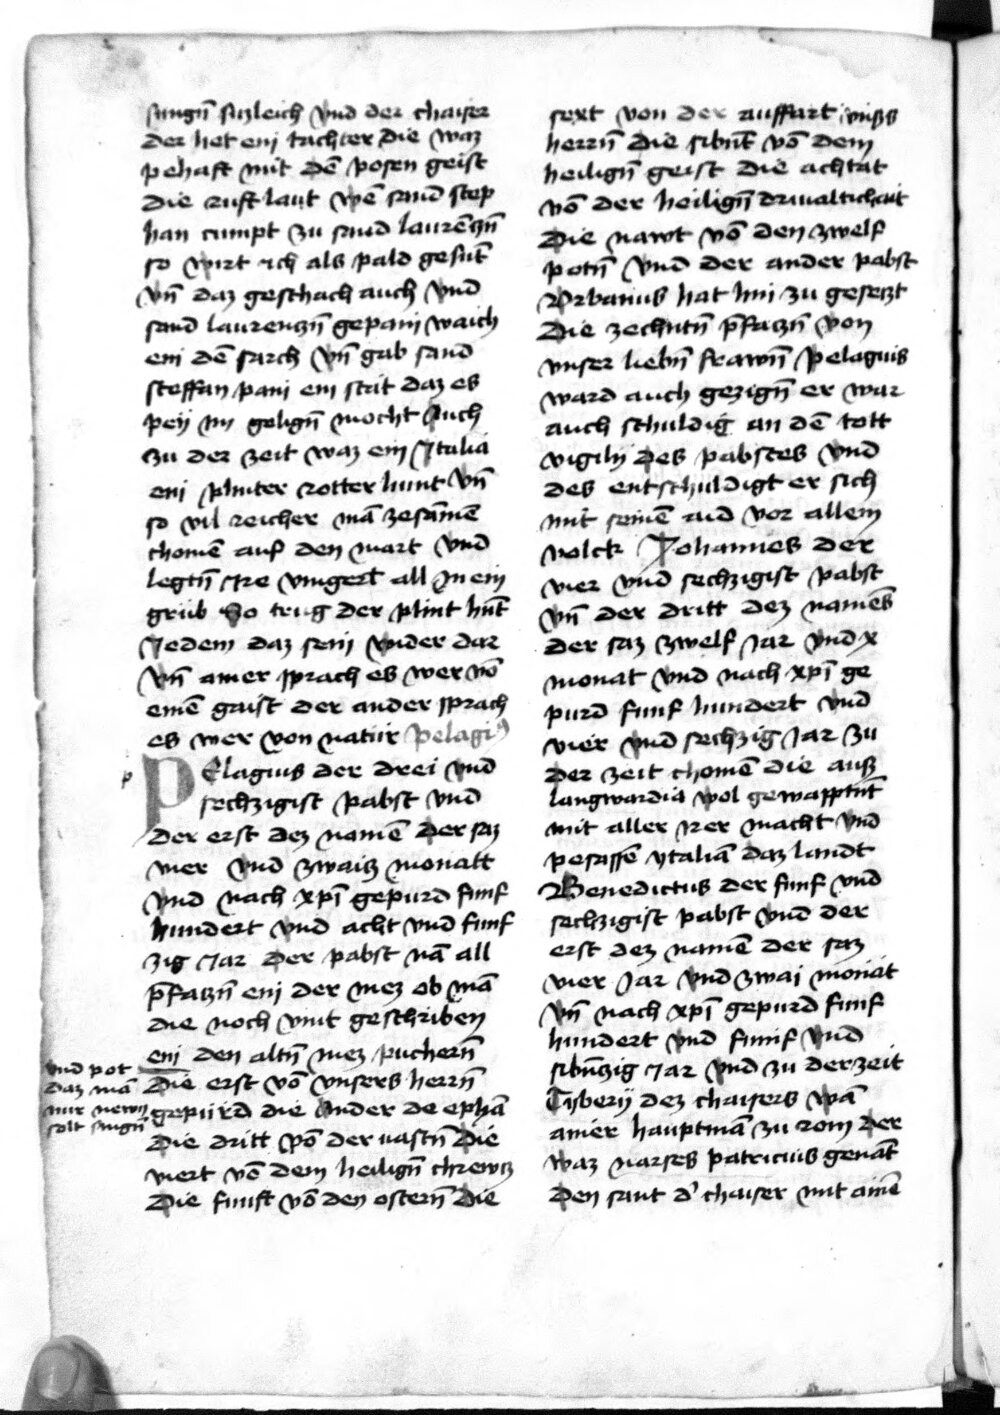 sungñ suzleich vnd der chaiser
der het ein tachter die waz
pehaft mit dē posen geist
die ruft laut wē sand step
han cumpt zu sand laurēnzñ
so wirt ich als pald gesūt
vñ daz geschach auch vnd
sand laurenczñ gepain waich
ein dē sarch vñ gab sand
steffan pain ein stat daz es
peÿ im geligñ mocht Auch
zu der zeit waz ein Italia
ein plinter rotter hunt vñ
so vil reicher mā zesāmē
chomē auf den mart vnd
legtñ Ire vingerl all In ein
grub So trug der plint hūt
Iedem daz sein wider dar
vñ ainer sprach es wer vō
einē gaist der ander sprach
es wer von natur Pelagi9
p
PElagius der drei vnd
sechzigist pabst vnd
der erst dez namē der saz
vier vnd zwaiz monatt
vnd nach xpi gepurd funf
hundert vnd acht vnd funf
zig Iar der pabst nā all
p̄fatzñ ein der mez ob mā
die noch vint geschriben
ein den altñ mez puchern̄
vnd pot
daz mā
nur newn
solt singñ
die erst vō vnsers herrñ
gepurd die Ander de ephā
die dritt vō der vastñ die
viert vō dem heilignˉ chrewcz
die funft vō den ostern̄ die
sext von der auffart vnsers
herrñ die sibnt̄ vō dem
heiligñ geist die achtāt
vō der heiligñ driualtichait
die nawt vō den zwelf
potñ vnd der ander pabst
Vrbanus hat hin zu gesetzt
die zechntñ p̄fatzñ von
vnser liebñ frawñ Pelagius
ward auch gezignˉ er war
auch schuldig an dē tott
vigilij des pabstes vnd
des entschuldigt er sich
mit seinē aid vor allem
volck Johannes der
vier vnd sechzigist pabst
vñ der dritt dez namēs
der saz zwelf Iar vnd x
monat vnd nach xpi ge
purd funf hundert vnd
vier vnd sechzig Iar zu
der zeit chomē die auß
langwardia wol gewapptnt̄
mit aller irer macht vnd
pesassē ytaliā daz landt
Benedictus der funf vnd
sechzigist pabst vnd der
erst dez namē der saz
vier Iar vnd zwai monat
vñ nach xpi gepurd funf
hundert vnd funif vnd
sibn̄zig Iar vnd zu der zeit
Tyberij dez chaisers wā
ainer hauptmā zu rom der
waz narses patricius genāt
den sant d' chaiser mit ainē